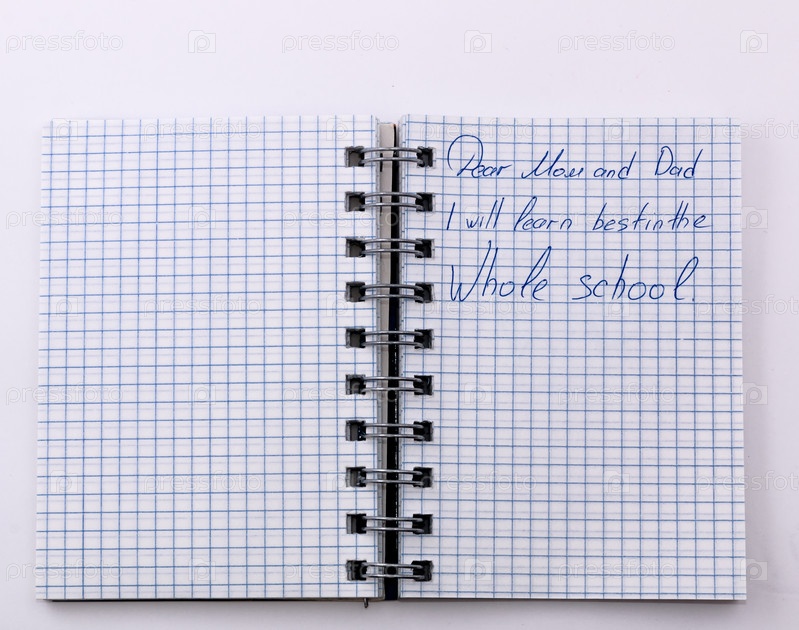 Dear Mom and Dad
I will learn best in the
Whole school.